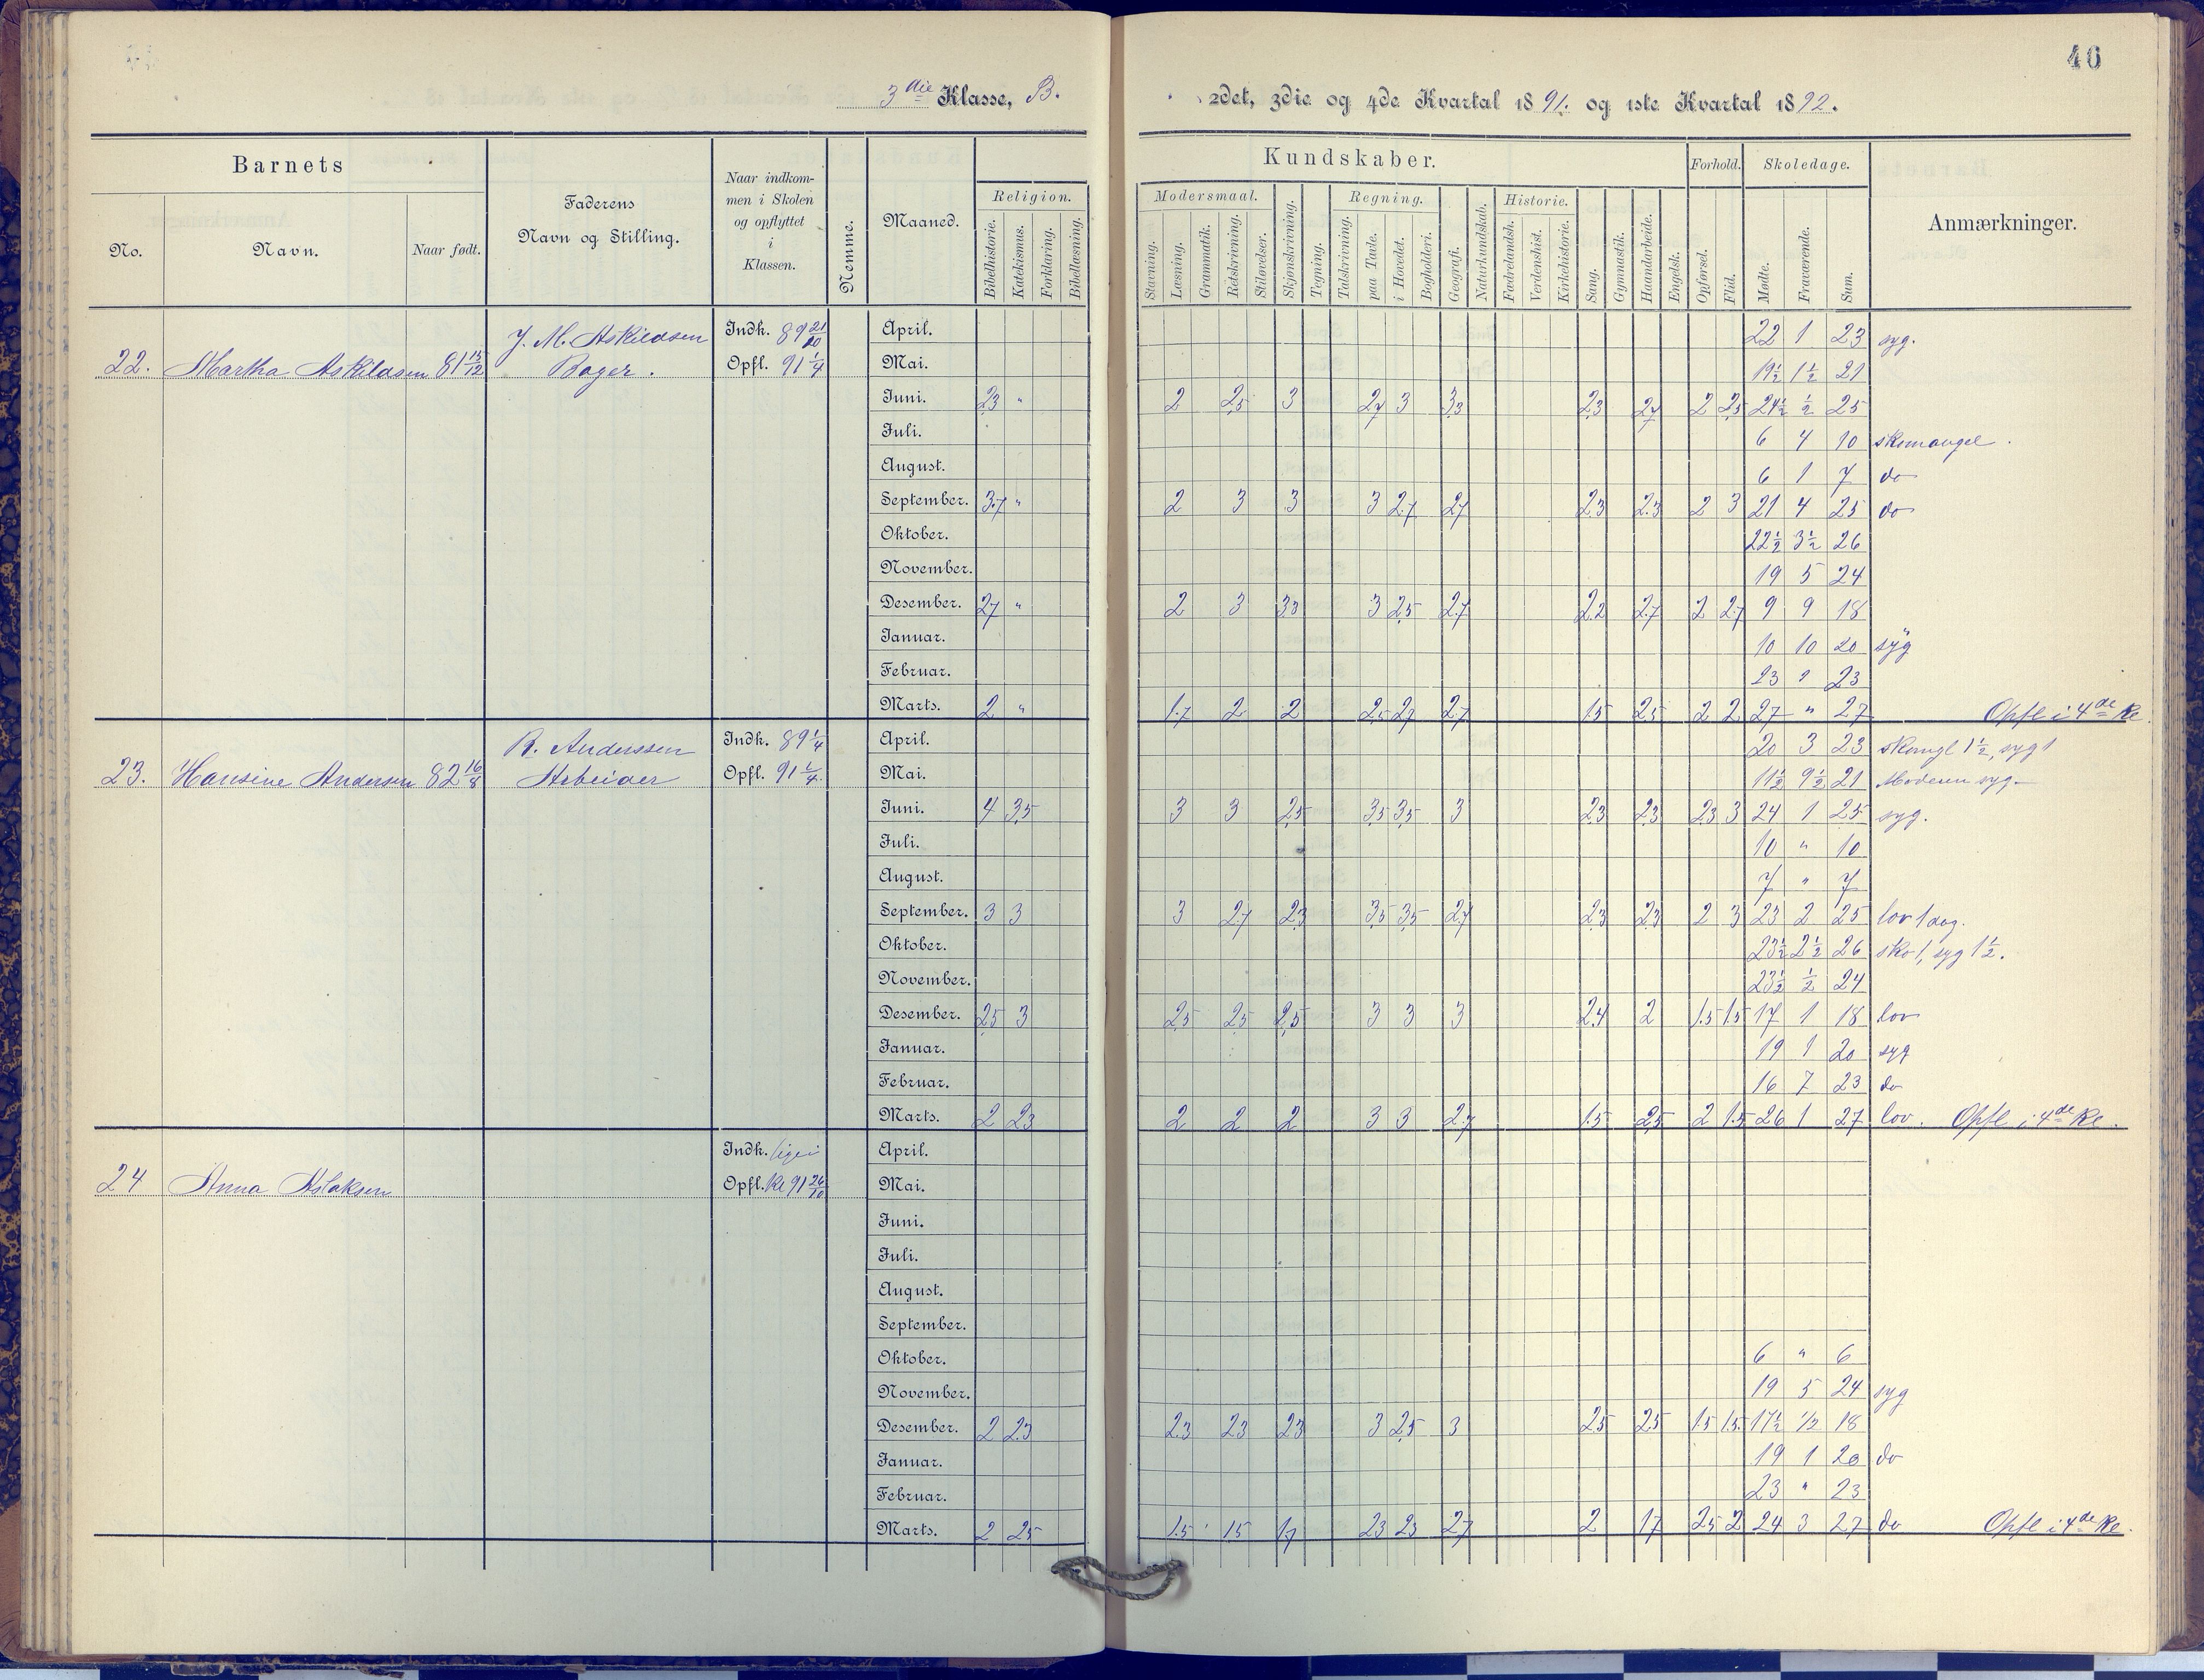 46
3die Klasse, B.
2det, 3die og 4de Kvartal 1891. og 1ste Kvartal 1892.
Barnets
No.
Navn.
Naar født.
Faderens
Navn og Stilling.
Naar indkom-
men i Skolen
og opflyttet
i
Klassen.
Nemme.
Maaned.
Kundskaber.
Religion.
Bibelhistorie.
Katekismus.
Forklaring.
Bibellæsning.
Modersmaal.
Stavning.
Læsning.
Grammatik.
Retskrivning.
Stiløvelser.
Skjønskrivning.
Tegning.
Regning.
Talskrivning.
paa Tavle.
i Hovedet.
Bogholderi.
Geografi.
Naturkundskab.
Historie.
Fædrelandsh.
Verdenshist.
Kirkehistorie.
Sang.
Gymnastik.
Haandarbeide.
Engelsk.
Forhold.
Opførsel.
Flid.
Skoledage.
Mødte.
Fraværende.
Sum.
Anmærkninger.
22. Martha Askildsen 81 15/12
J. M. Askildsen
Bager.
Indk. 89 21/10
Opfl. 91 1/4
April. 22 1 23 syg.
Mai. 19½ 1½ 21
Juni. 2,3 " 2 2,5 3 2,7 3 3,3 2,3 2,7 2 2,5 24½ ½ 25
Juli. 6 4 10 skomangel.
August. 6 1 7 do
September. 3,7 " 2 3 3 3 2,7 2,7 2,3 2,3 2 3 21 4 25 do
Oktober. 22½ 3½ 26
November. 19 5 24
Desember. 2,7 " 2 3 3,3 3 2,5 2,7 2,2 2,7 2 2,7 9 9 18
Januar. 10 10 20 syg
Februar. 23 " 23
Marts. 2 " 1,7 2 2 2,5 2,7 2,7 1,5 2,5 2 2 27 " 27 Opfl i 4de Kl.
23. Hansine Andersen 82 16/8
R. Anderssen
Arbeider
Indk. 89 1/4
Opfl. 91 1/4.
April. 20 3 23 skomgl 1½, syg 1
Mai. 11½ 9½ 21 Moderen syg.
Juni. 4 3,5 3 3 2,5 3,5 3,5 3 2,3 2,3 2,3 3 24 1 25 syg.
Juli. 10 " 10
August. 7 " 7
September. 3 3 3 2,7 2,3 3,5 3,5 2,7 2,3 2,3 2 3 23 2 25 lov 1 dag.
Oktober. 23½ 2½ 26 sko 1, syg 1½.
November. 23½ ½ 24
Desember. 2,5 3 2,5 2,5 2,5 3 3 3 2,4 2 1,5 1,5 17 1 18 lov
Januar. 19 1 20 syg
Februar. 16 7 23 do
Marts. 2 2,3 2 2 2 3 3 2,7 1,5 2,5 2 1,5 26 1 27 lov. Opfl i 4de Kl.
24 Anna Aslaksen
Indk.
Opfl. Kl 91 26/10
April.
Mai.
Juni.
Juli.
August.
September.
Oktober. 6 " 6
November. 19 5 24 syg
Desember. 2 2,3 2,3 2,3 2,3 3 2,5 3 2,5 2,5 1,5 1,5 17½ ½ 18
Januar. 19 1 20 do
Februar. 23 " 23
Marts. 2 2,5 1,5 1,5 1,7 2,3 2,3 2,7 2 1,7 2,5 2 24 3 27 do Opfl i 4de Kl.